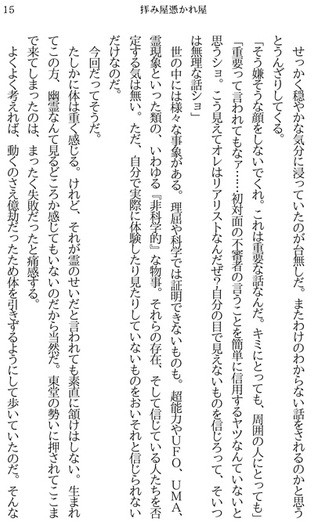 15
拝み屋憑かれ屋
せっかく穏やかな気分に浸っていたのが台無しだ。またわけのわからない話をされるのかと思う
とうんざりしてくる。
「そう嫌そうな顔をしないでくれ。これは重要な話なんだ。キミにとっても、周囲の人にとっても」
「重要って言われてもなァ……初対面の不審者の言うことを簡単に信用するヤツなんていないと
思うショ。こう見えてオレはリアリストなんだぜ？自分の目で見えないものを信じろって、そいつ
は無理な話ショ」
世の中には様々な事象がある。理屈や科学では証明できないものも。超能力やUFO、UMA、
霊現象といった類の、いわゆる『非科学的』な物事。それらの存在、そして信じている人たちを否
定する気は無い。ただ、自分で実際に体験したり見たりしていないものをおいそれと信じられない
だけなのだ。
今回だってそうだ。
たしかに体は重く感じる。けれど、それが霊のせいだと言われても素直に頷けはしない。生まれ
てこの方、幽霊なんて見るどころか感じてもいないのだから当然だ。東堂の勢いに押されてここま
で来てしまったのは、まったく失敗だったと痛感する。
よくよく考えれば、動くのさえ億劫だったため体を引きずるようにして歩いていたのだ。そんな